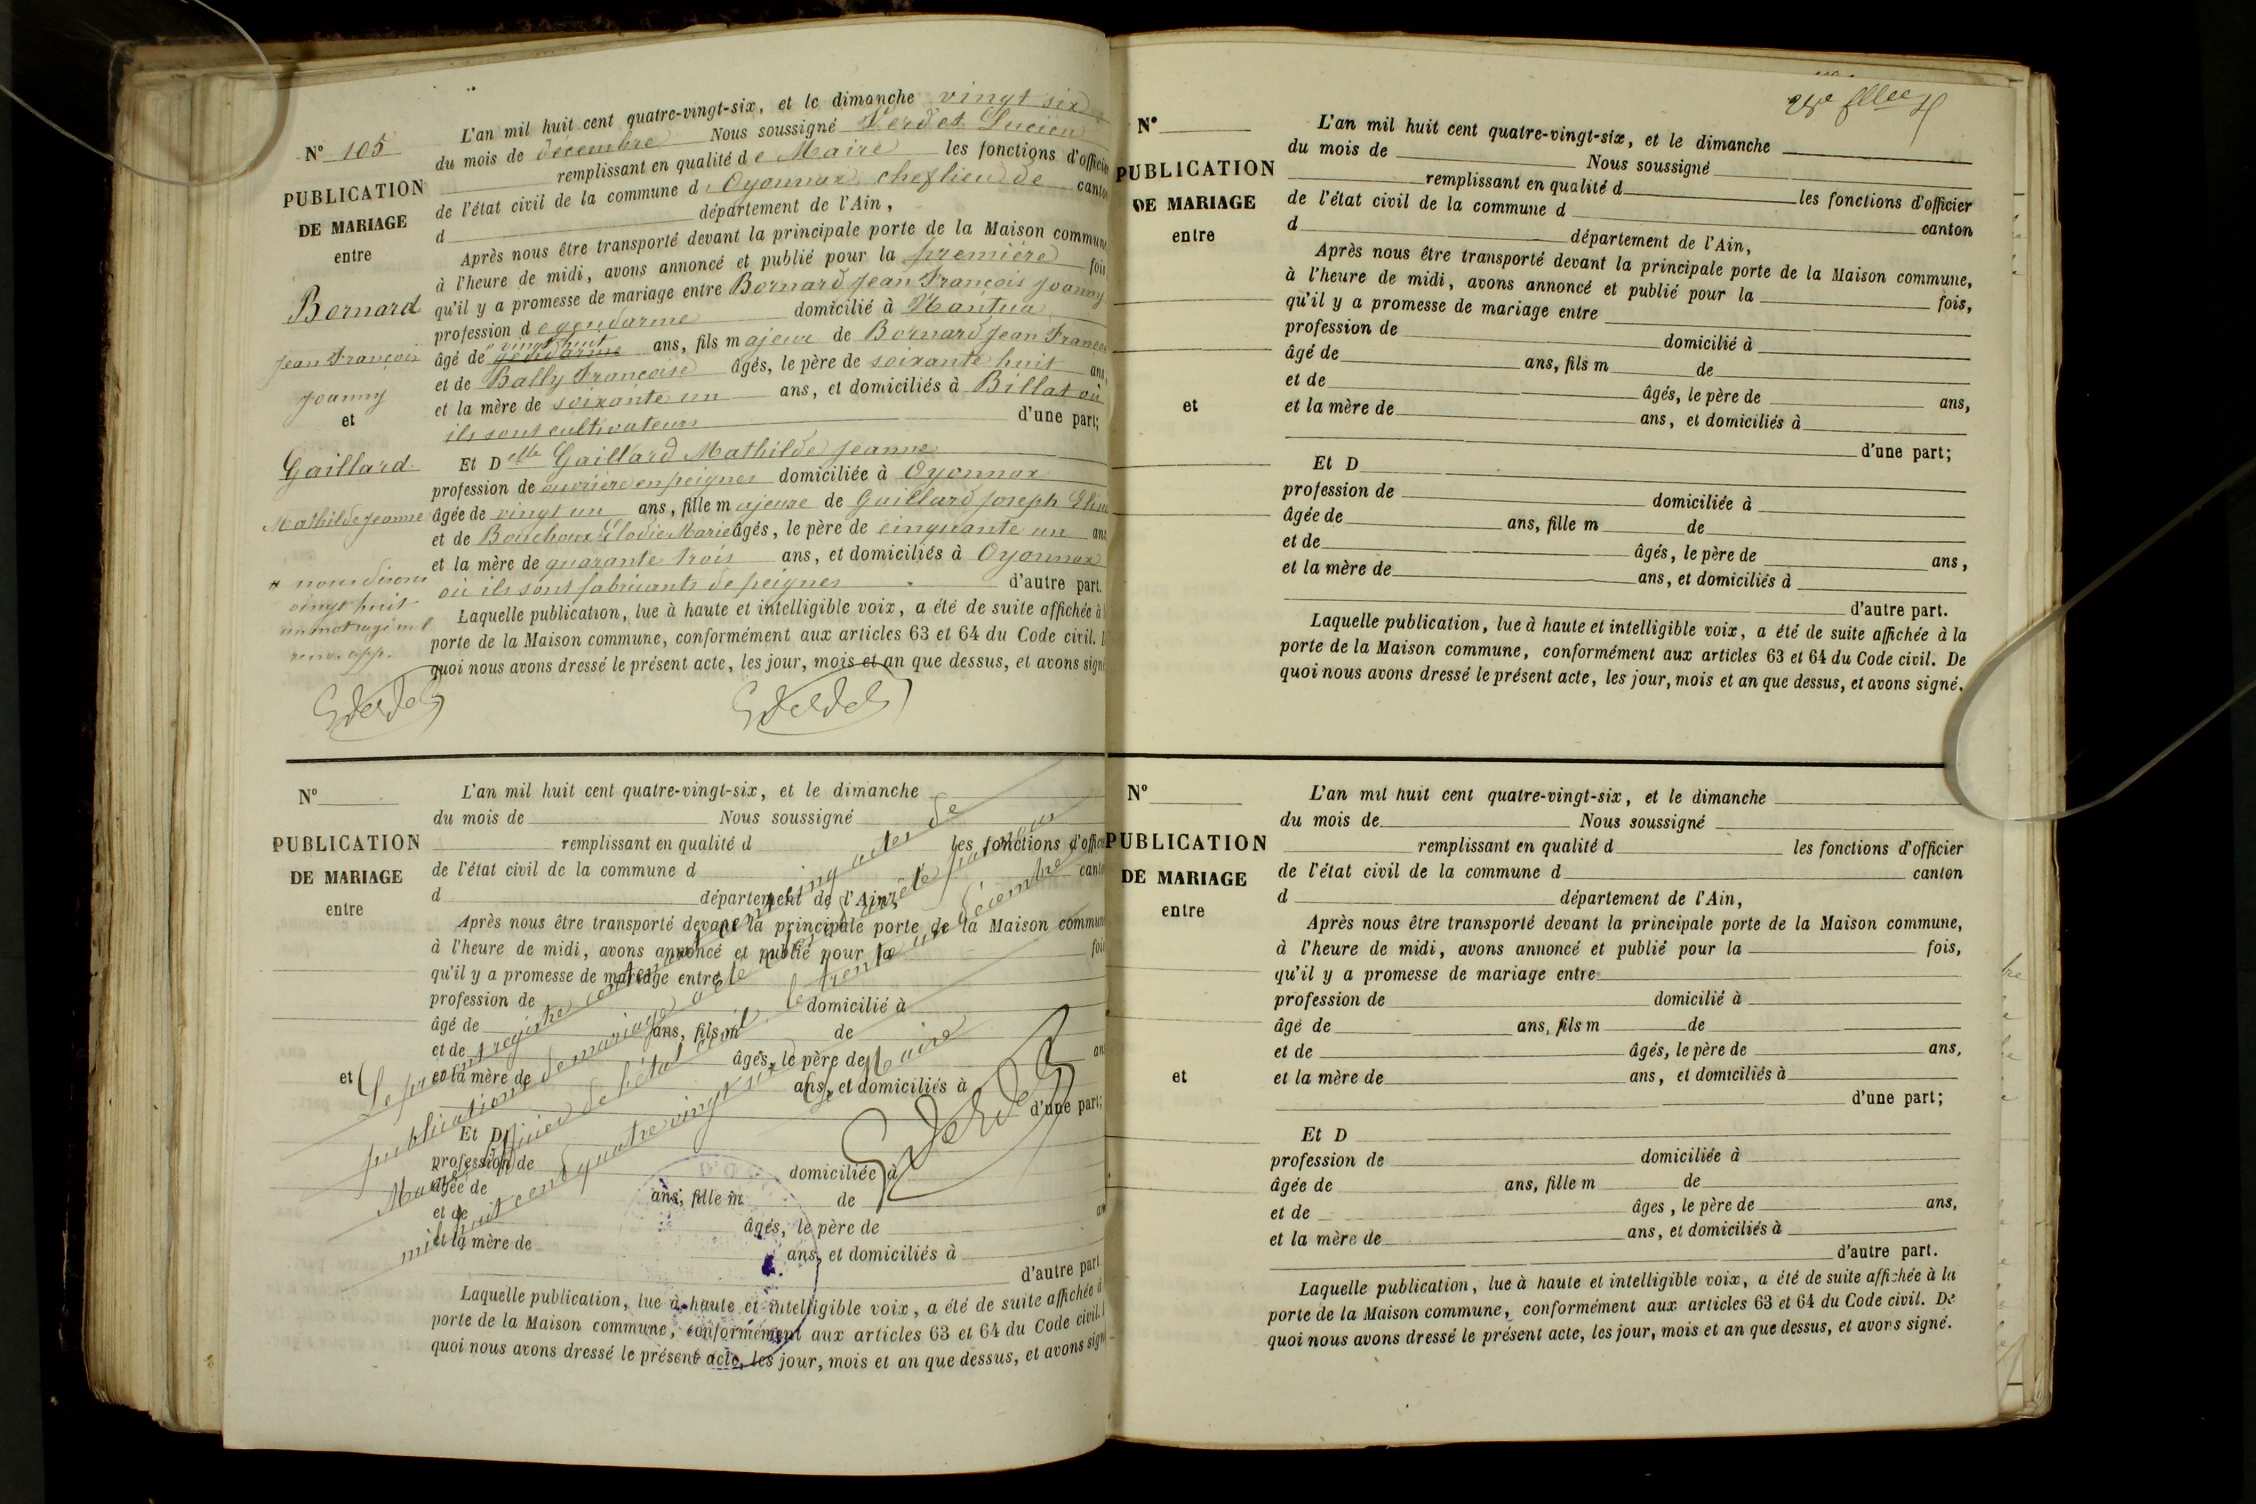 N° 105
PUBLICATION
DE MARIAGE
entre
Bornard
Jean François
Joanny
et
Gaillard
Mathilde Jeanne
" nous disons
vingt huit
un mot rayé nul
renv. app.
L'an mil huit cent quatre-vingt-six, et le dimanche vingt six
du mois de décembre Nous soussigné Verdet Lucien
remplissant en qualité de Maire les fonctions d'officier
de l'état civil de la commune d'Oyonnax chef lieu de canton
d département de l'Ain,
Après nous être transporté devant la principale porte de la Maison commune,
à l'heure de midi, avons annoncé et publié pour la première fois
qu'il y a promesse de mariage entre Bornard Jean François Joanny
profession de gendarme domicilié à Nantua
âgé de " vingt huit gendarme ans, fils majeur de Bornard Jean François
et de Bally Françoise âgés, le père de soixante huit ans,
et la mère de soixante un ans, et domiciliés à Billat où
ils sont cultivateurs d'une part;
Et Delle Gaillard Mathilde Jeanne
profession de ouvrière en peignes domiciliée à Oyonnax
âgée de vingt un ans, fille majeure de Gaillard Joseph
et de Bouchoux Elodie Marie âgés, le père de cinquante un ans
et la mère de quarante trois ans, et domiciliés à Oyonnax
où ils sont fabricants de peignes d'autre part.
Laquelle publication, lue à haute et intelligible voix, a été de suite affichée à
porte de la Maison commune, conformément aux articles 63 et 64 du Code civil.
quoi nous avons dressé le présent acte, les jour, mois et an que dessus, et avons signé
N°
PUBLICATION
DE MARIAGE
entre
et
L'an mil huit cent quatre-vingt-six, et le dimanche
du mois de Nous soussigné
remplissant en qualité d les fonctions d'officier
de l'état civil de la commune d canton
d département de l'Ain,
Après nous être transporté devant la principale porte de la Maison commune
à l'heure de midi, avons annoncé et publié pour la fois
qu'il y a promesse de mariage entre
profession de domicilié à
âgé de ans, fils m de
et de âgés, le père de an
et la mère de ans, et domiciliés à
d'une part;
Et D
profession de domiciliée à
âgée de ans, fille m de
et de âgés, le père de an
et la mère de ans, et domiciliés à
d'autre part
Laquelle publication, lue à haute et intelligible voix, a été de suite affichée à
porte de la Maison commune, conformément aux articles 63 et 64 du Code civil.
quoi nous avons dressé le présent acte, les jour, mois et an que dessus, et avons signé
Le présent registre contenant cent cinq actes de
publications de mariage a été arrêté par nous
Maire officier de l'état civil le trente un décembre
mil huit cent quatre vingt six Le Maire
N°
PUBLICATION
DE MARIAGE
entre
et
L'an mil huit cent quatre-vingt-six, et le dimanche
du mois de Nous soussigné
remplissant en qualité d les fonctions d'officier
de l'état civil de la commune d canton
d département de l'Ain,
Après nous être transporté devant la principale porte de la Maison commune,
à l'heure de midi, avons annoncé et publié pour la fois,
qu'il y a promesse de mariage entre
profession de domicilié à
âgé de ans, fils m de
et de âgés, le père de ans,
et la mère de ans, et domiciliés à
d'une part;
Et D
profession de domiciliée à
âgée de ans, fille m de
et de âgés, le père de ans,
et la mère de ans, et domiciliés à
d'autre part.
Laquelle publication, lue à haute et intelligible voix, a été de suite affichée à la
porte de la Maison commune, conformément aux articles 63 et 64 du Code civil. De
quoi nous avons dressé le présent acte, les jour, mois et an que dessus, et avons signé.
N°
PUBLICATION
DE MARIAGE
entre
et
L'an mil huit cent quatre-vingt-six, et le dimanche
du mois de Nous soussigné
remplissant en qualité d les fonctions d'officier
de l'état civil de la commune d canton
d département de l'Ain,
Après nous être transporté devant la principale porte de la Maison commune,
à l'heure de midi, avons annoncé et publié pour la fois,
qu'il y a promesse de mariage entre
profession de domicilié à
âgé de ans, fils m de
et de âgés, le père de ans,
et la mère de ans, et domiciliés à
d'une part;
Et D
profession de domiciliée à
âgée de ans, fille m de
et de âges, le père de ans,
et la mère de ans, et domiciliés à
d'autre part.
Laquelle publication, lue à haute et intelligible voix, a été de suite affichée à la
porte de la Maison commune, conformément aux articles 63 et 64 du Code civil. De
quoi nous avons dressé le présent acte, les jour, mois et an que dessus, et avons signé.